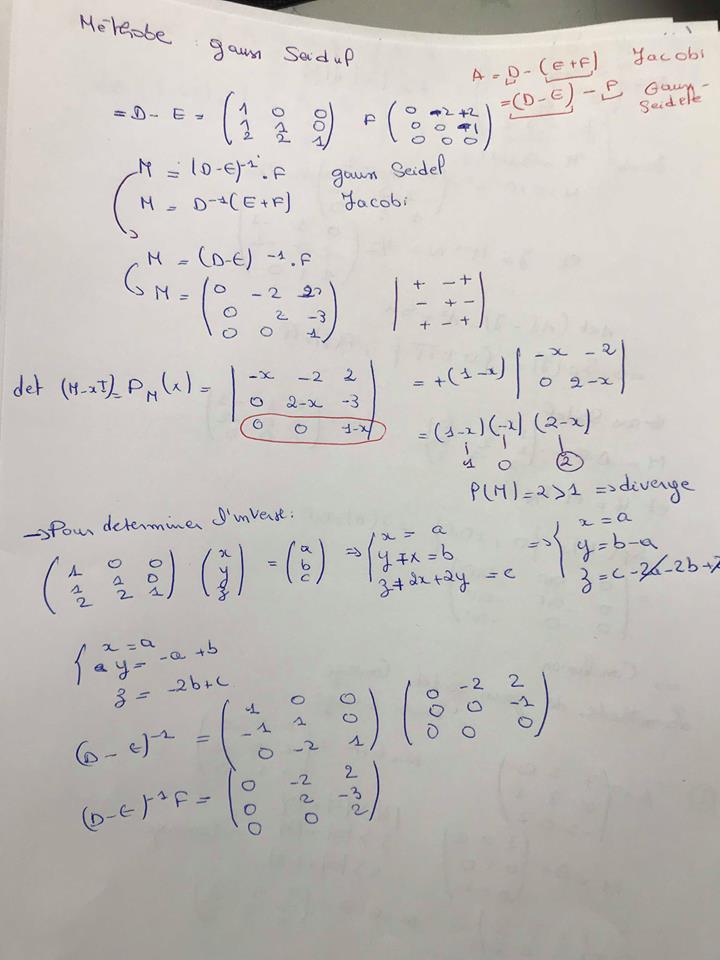 Méthobe : gauss Seidup
A = D - (E+F) Jacobi
= (D-E) - P Gauss-Seidele
= D - E = ( 1 0 0 ; 1 1 0 ; 2 2 1 ) F ( 0 -2 +2 ; 0 0 -1 ; 0 0 0 )
M = (D-E)⁻¹ . F gauss Seidel
M = D⁻¹(E+F) Jacobi
M = (D-E) ⁻¹ . F
M = ( 0 -2 2 ; 0 2 -3 ; 0 0 1 ) | + - + ; - + - ; + - + |
det (M-xI) = P_M(x) = | -x -2 2 ; 0 2-x -3 ; 0 0 1-x | = +(1-x) | -x -2 ; 0 2-x |
= (1-x)(-x)(2-x)
1 0 2
ρ(M) = 2 > 1 => diverge
→ Pour determiner l'inverse :
( 1 0 0 ; 1 1 0 ; 2 2 1 ) ( x ; y ; z ) = ( a ; b ; c ) => { x = a ; y+x = b ; z+2x+2y = c => { x = a ; y = b-a ; z = c-2a-2b+
{ x = a
y = -a+b
z = -2b+c
(D-E)⁻¹ = ( 1 0 0 ; -1 1 0 ; 0 -2 1 ) ( 0 -2 2 ; 0 0 -1 ; 0 0 0 )
(D-E)⁻¹F = ( 0 -2 2 ; 0 2 -3 ; 0 0 2 )